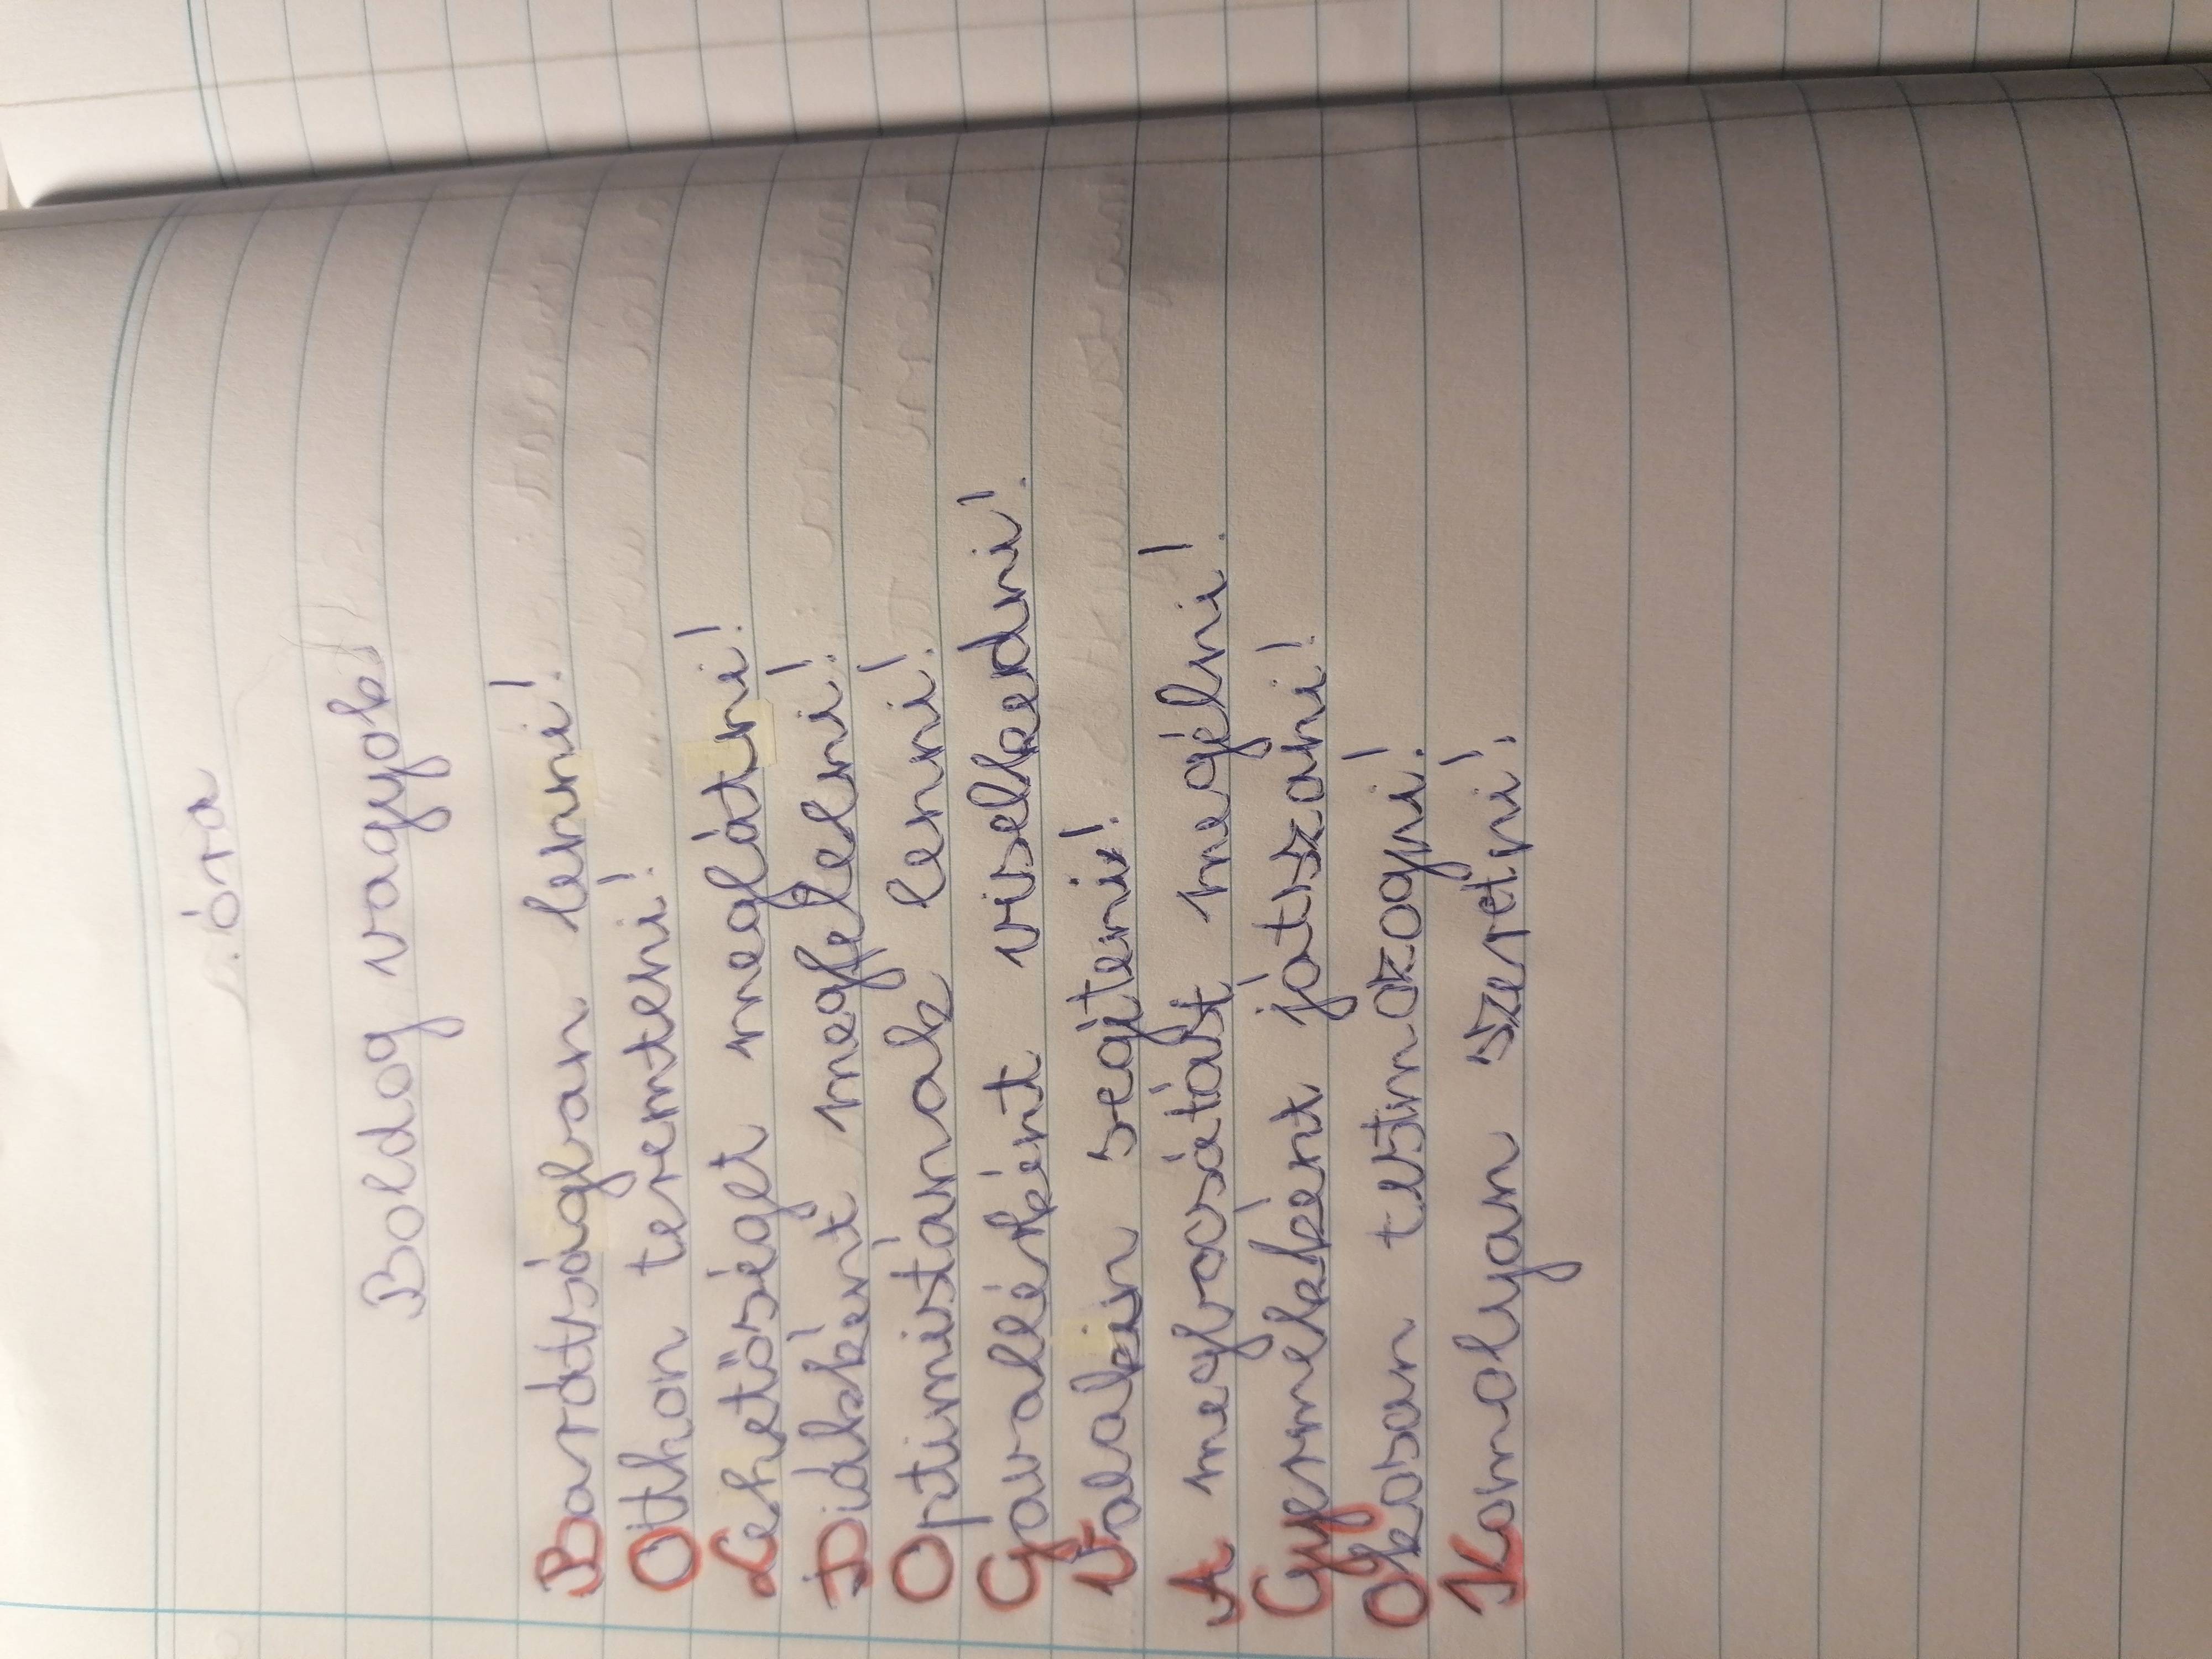 óra
Boldog vagyok
Barátságban lenni!
Otthon teremteni!
Lehetőséget meglátni!
Diákként megfelelni!
Optimistának lenni!
Gavallérként viselkedni!
Valakin segíteni!
A megbocsátást megélni!
Gyermekként játszani!
Okosan testmozogni!
Komolyan szeretni!